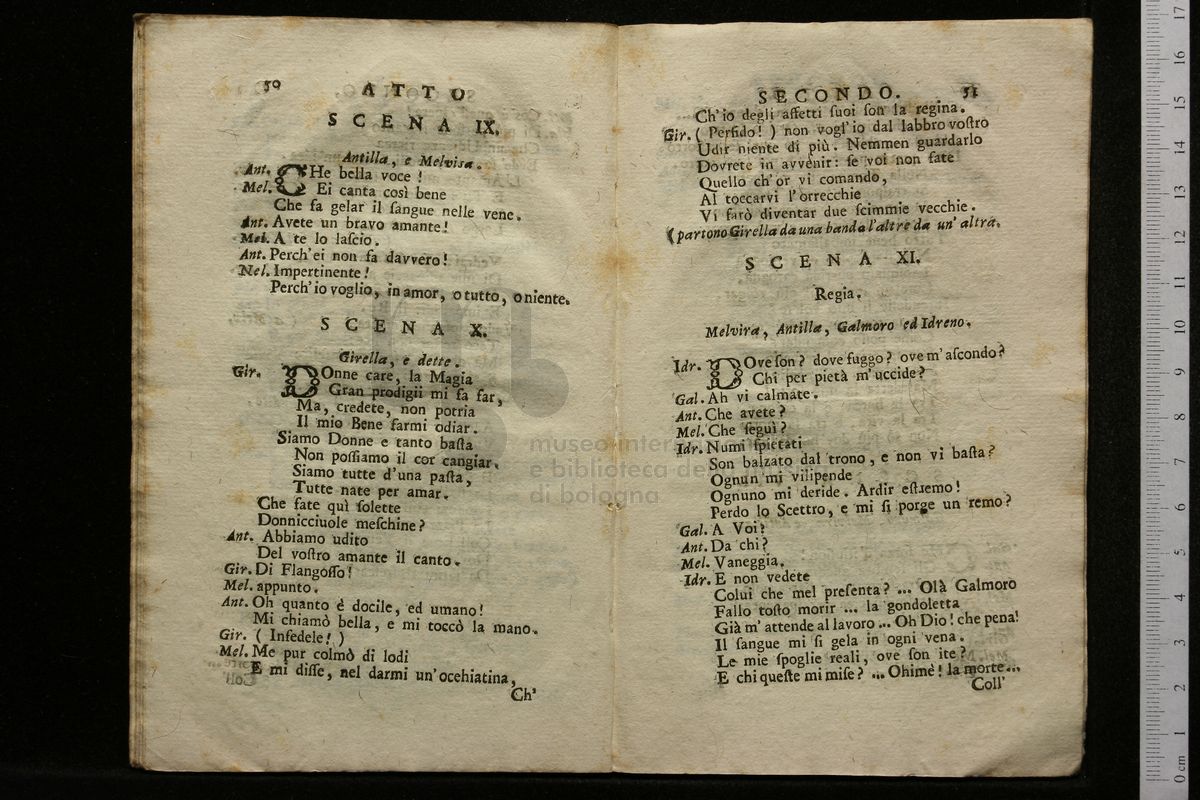 50
ATTO
SCENA IX.
Antilla, e Melvisa.
Ant. CHe bella voce!
Mel. Ei canta così bene
Che fa gelar il ſangue nelle vene.
Ant. Avete un bravo amante!
Mel. A te lo laſcio.
Ant. Perch'ei non fa davvero!
Nel. Impertinente!
Perch'io voglio, in amor, o tutto, o niente.
SCENA X.
Girella, e dette.
Gir. DOnne care, la Magia
Gran prodigii mi fa far,
Ma, credete, non potria
Il mio Bene farmi odiar.
Siamo Donne e tanto baſta
Non poſſiamo il cor cangiar.
Siamo tutte d'una paſta,
Tutte nate per amar.
Che fate quì ſolette
Donnicciuole meſchine?
Ant. Abbiamo udito
Del voſtro amante il canto.
Gir. Di Flangoſſo!
Mel. appunto.
Ant. Oh quanto è docile, ed umano!
Mi chiamò bella, e mi toccò la mano.
Gir. (Infedele!)
Mel. Me pur colmò di lodi
E mi diſſe, nel darmi un'ocehiatina,
Ch'
SECONDO.
51
Ch'io degli affetti ſuoi ſon la regina.
Gir. (Perfido!) non vogl'io dal labbro voſtro
Udir niente di più. Nemmen guardarlo
Dovrete in avvenir: ſe voi non fate
Quello ch'or vi comando,
Al toccarvi l'orrecchie
Vi farò diventar due ſcimmie vecchie.
(partono Girella da una banda l'altre da un'altra.
SCENA XI.
Regia.
Melvira, Antilla, Galmoro ed Idreno.
Idr. DOve ſon? dove fuggo? ove m'aſcondo?
Chi per pietà m'uccide?
Gal. Ah vi calmate.
Ant. Che avete?
Mel. Che ſeguì?
Idr. Numi ſpietati
Son balzato dal trono, e non vi baſta?
Ognun mi vilipende
Ognuno mi deride. Ardir eſtremo!
Perdo lo Scettro, e mi ſi porge un remo?
Gal. A Voi?
Ant. Da chi?
Mel. Vaneggia.
Idr. E non vedete
Colui che mel preſenta? ... Olà Galmoro
Fallo toſto morir ... la gondoletta
Già m'attende al lavoro ... Oh Dio! che pena!
Il ſangue mi ſi gela in ogni vena.
Le mie ſpoglie reali, ove ſon ite?
E chi queſte mi miſe? ... Ohimè! la morte...
Coll'
museo inter
e biblioteca de
di bologna
0 cm 1 2 3 4 5 6 7 8 9 10 11 12 13 14 15 16 17